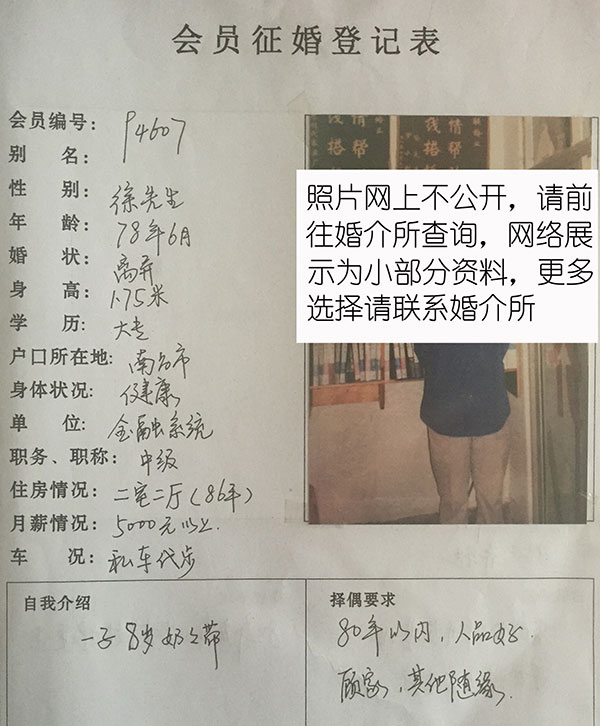 会员征婚登记表
会员编号: P4607
别 名:
性 别: 徐先生
年 龄: 78年6月
婚 状: 离异
身 高: 1.75米
学 历: 大专
户口所在地: 南昌市
身体状况: 健康
单 位: 金融系统
职务、职称: 中级
住房情况: 二室二厅(86平)
月薪情况: 5000元以上.
车 况: 私车代步
照片网上不公开，请前
往婚介所查询，网络展
示为小部分资料，更多
选择请联系婚介所
自我介绍
一子8岁奶奶带
择偶要求
80年以内，人品好.
顾家，其他随缘.